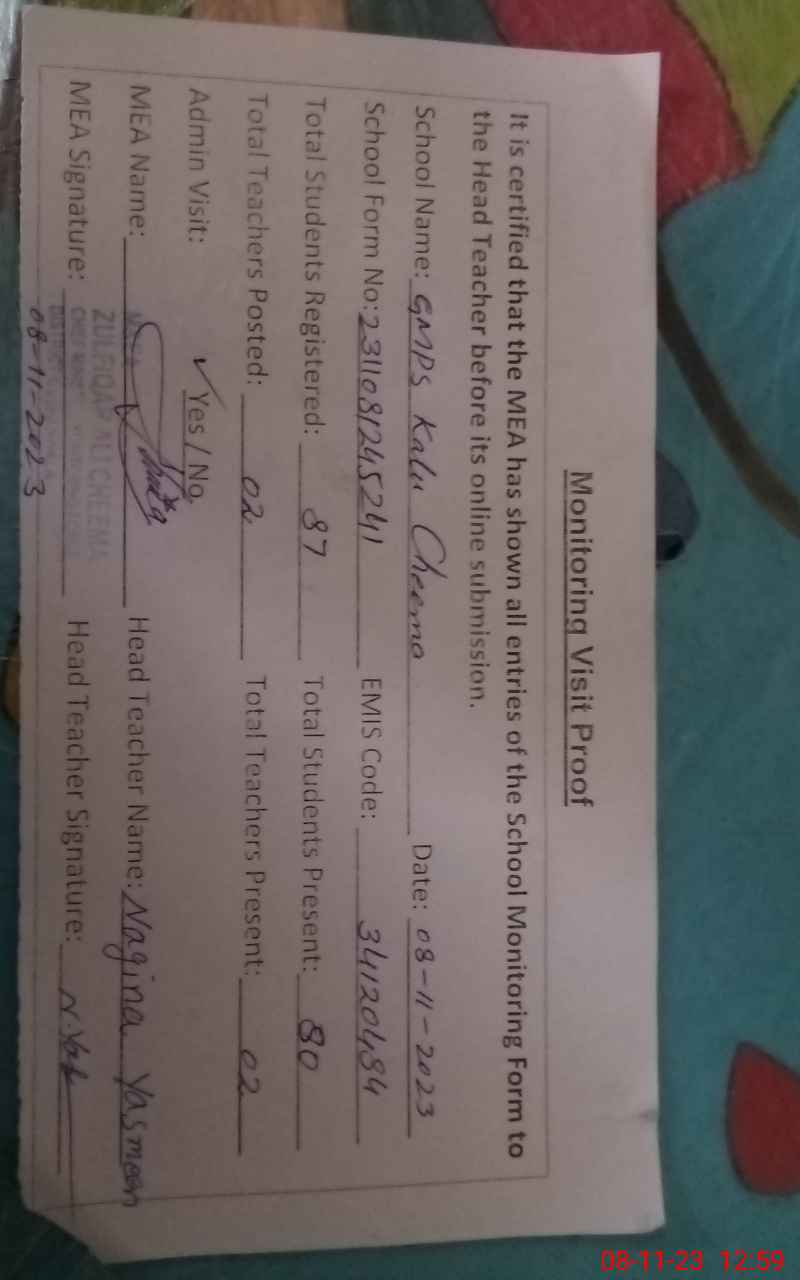 Monitoring Visit Proof
It is certified that the MEA has shown all entries of the School Monitoring Form to
the Head Teacher before its online submission.
School Name: GMPS Kalu Cheema Date: 08-11-2023
School Form No: 2311081245241 EMIS Code: 34120484
Total Students Registered: 87 Total Students Present: 80
Total Teachers Posted: 02 Total Teachers Present: 02
Admin Visit: ✓ Yes / No
MEA Name: Head Teacher Name: Nagina Yasmeen
ZULFIQAR ALI CHEEMA
MEA Signature: Head Teacher Signature: N.Yas
08-11-2023
08-11-23 12:59